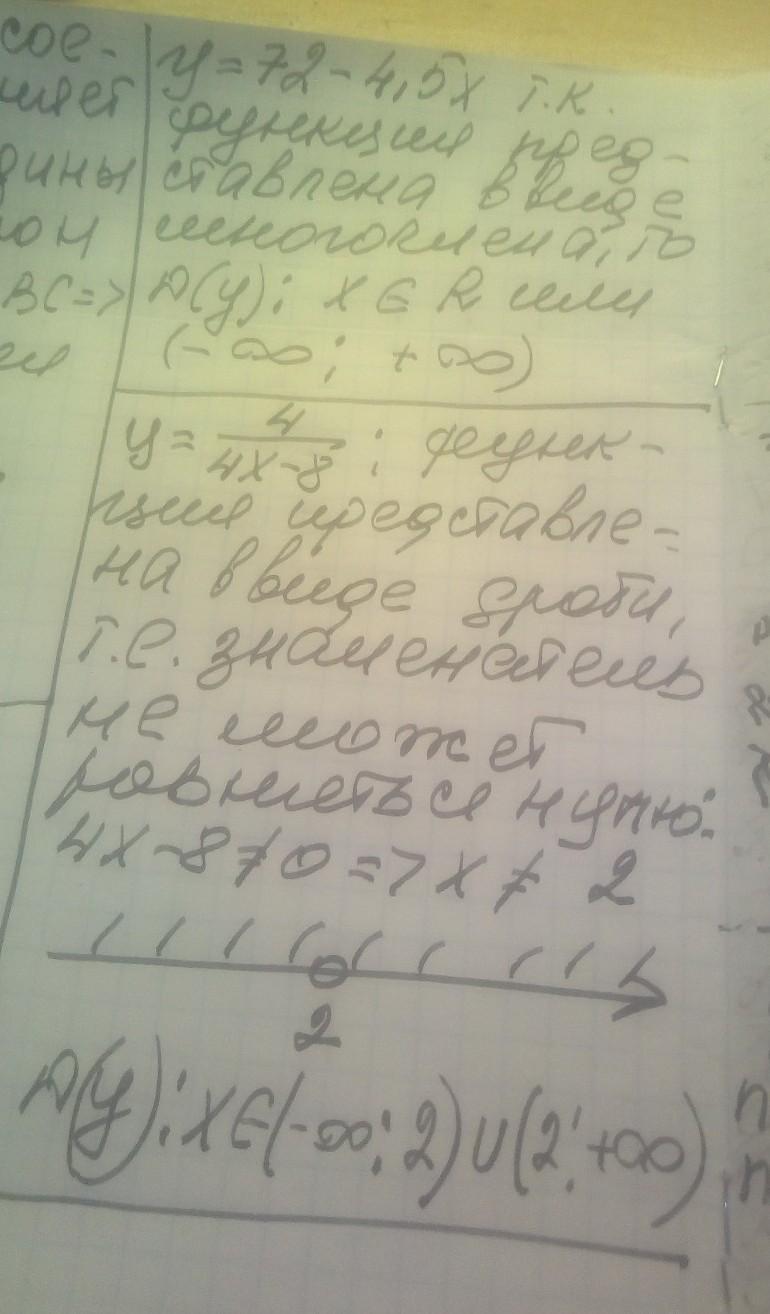 сое-
няет
дины
рон
BC=>
ей
y=72-4,5x т.к.
функция пред-
ставлена в виде
многочлена, то
D(y): x∈R или
(-∞; +∞)
y=4/(4x-8); функ-
ция представле-
на в виде дроби,
т.е. знаменатель
не может
равняться нулю:
4x-8≠0=>x≠2
2
D(y): x∈(-∞; 2)∪(2; +∞)